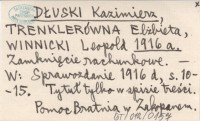 DŁUSKI Kazimierz,
TRENKLERÓWNA Elżbieta,
WINNICKI Leopold 1916 a.
Zamknięcie rachunkowe. —
W: Sprawozdanie 1916 a, s. 10-
-15. Tytuł tylko w spisie treści.
Pomoc Bratnia w Zakopanem.